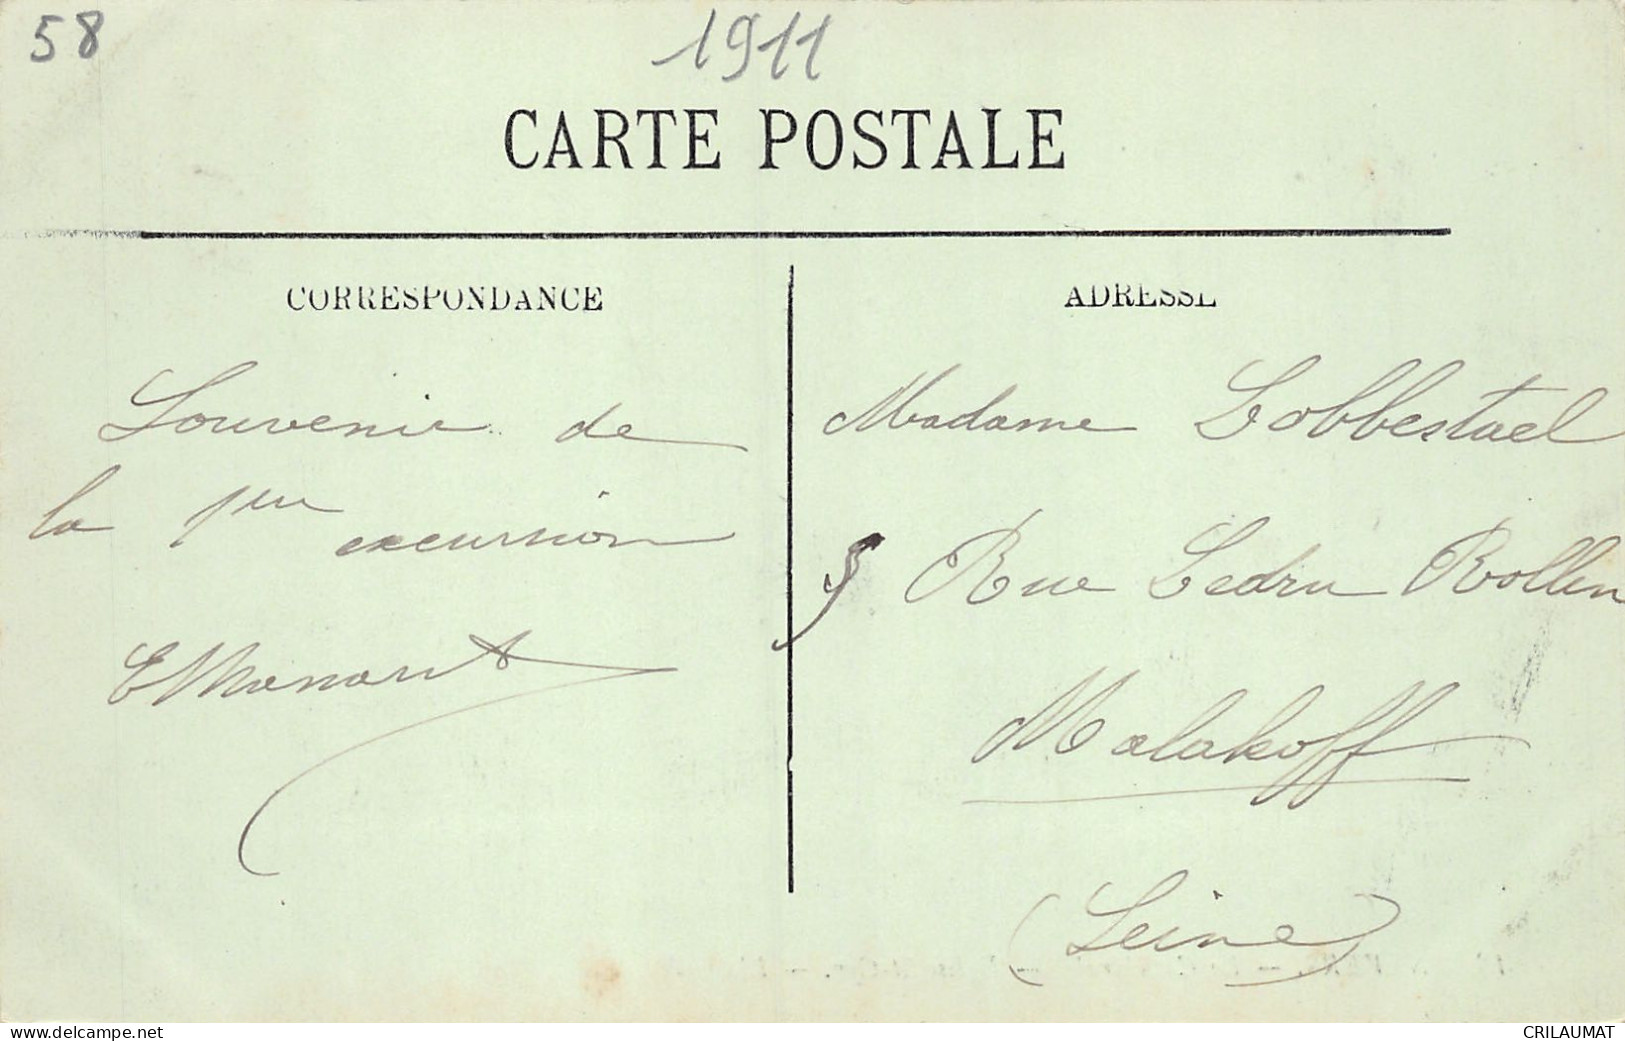 58
1911
CARTE POSTALE
CORRESPONDANCE
Souvenir de
la 1ere excursion
ADRESSE
Madame Lobbestael
5 Rue Ledru Rollin
Malakoff
(Seine)
www.delcampe.net
CRILAUMAT